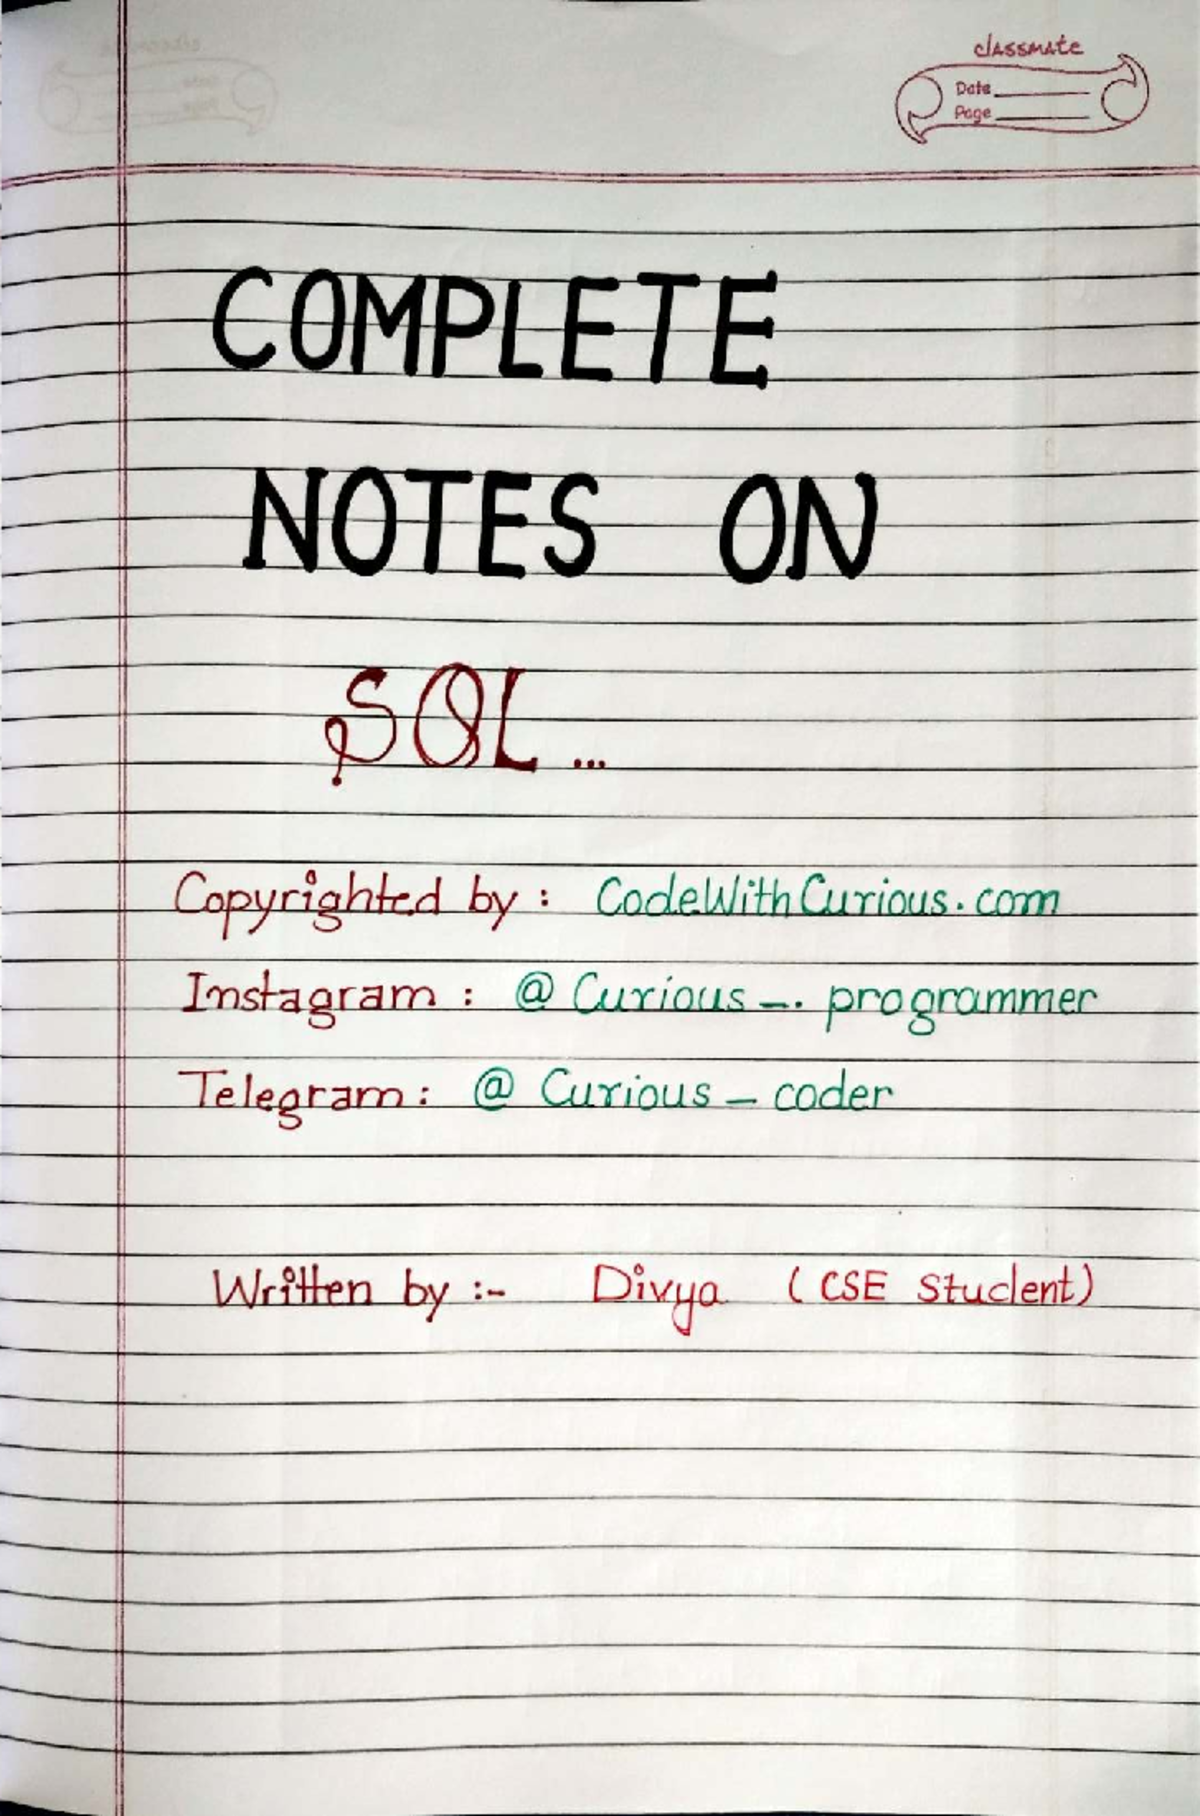 classmate
Date
Page
COMPLETE
NOTES ON
SQL...
Copyrighted by : CodeWithCurious.com
Instagram : @ Curious _. programmer
Telegram : @ Curious _ coder
Written by :- Divya ( CSE Student)